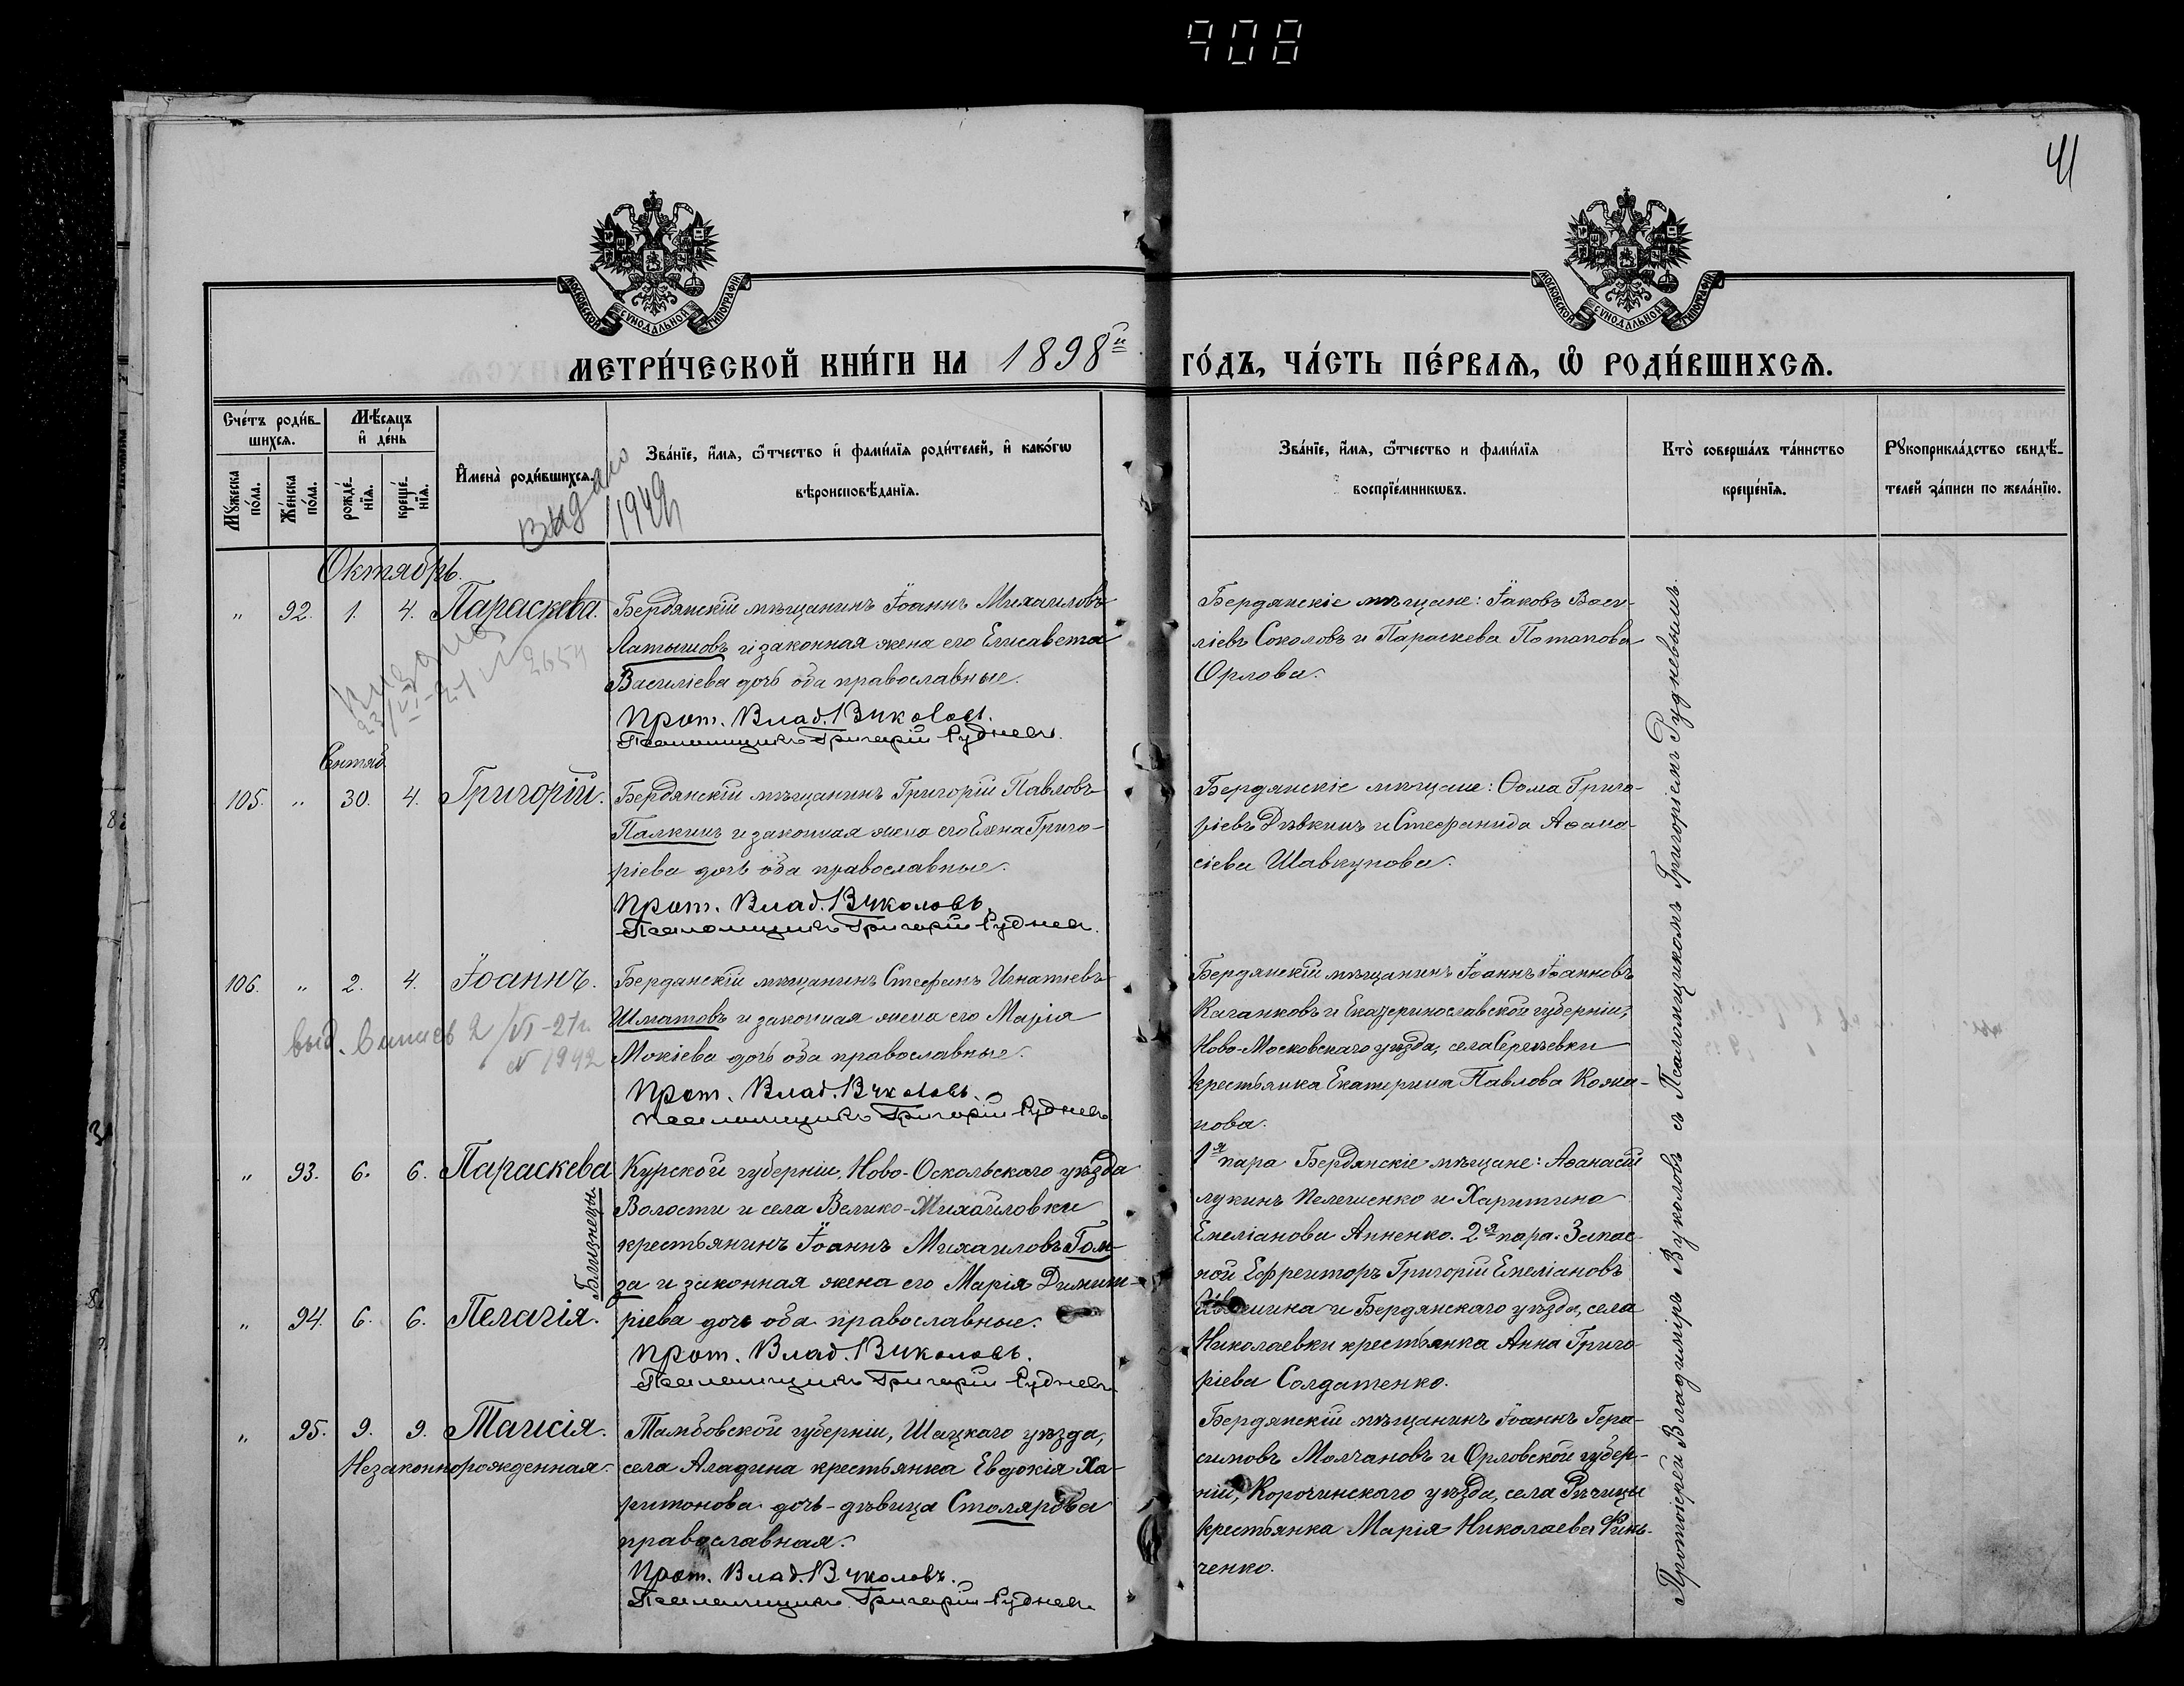 908
41
МОСКОВСКОЙ СѴНОДАЛЬНОЙ ТИПОГРАФІИ
МОСКОВСКОЙ СѴНОДАЛЬНОЙ ТИПОГРАФІИ
МЕТРИ́ЧЕСКОЙ КНИ́ГИ НА 1898й ГО́ДЪ, ЧА́СТЬ ПЕ́РВАѦ, Ѡ҆ РОДИ́ВШИХСѦ.
Сче́тъ роди́в-
шихся.
Мꙋ́жеска по́ла.
Же́нска по́ла.
Мѣ́сяцъ
и҆ де́нь
рожде́-
нїя.
креще́-
нїя.
И҆мена̀ роди́вшихся.
Зва́нїе, и҆́мя, ѻ҆́тчество и҆ фами́лїя роди́телей, и҆ како́гѡ
вѣроисповѣ́данїя.
Зва́нїе, и҆́мя, ѻ҆́тчество и фами́лїя
воспрїе́мникѡвъ.
Кто̀ соверша́лъ та́инство
креще́нїя.
Рꙋкоприкла́дство свидѣ́-
телей за́писи по жела́нїю.
Выдано
Октябрь.
" 92. 1. 4. Параскева.
Бердянскій мѣщанинъ Іоаннъ Михаиловъ
Латышовъ и законная жена его Елисавета
Василіева дочь оба православные.
Прот. Влад. Вуколовъ.
Псаломщикъ Григорій Рудневъ.
Бердянскіе мѣщане: Іаковъ Васи-
ліевъ Соколовъ и Параскева Потапова
Орлова.
2654
Сентяб.
105. " 30. 4. Григорій.
Бердянскій мѣщанинъ Григорій Павловъ
Палкинъ и законная жена его Елена Григо-
ріева дочь оба православные.
Прот. Влад. Вуколовъ.
Псаломщикъ Григорій Рудневъ.
Бердянскіе мѣщане: Ѳома Григо-
ріевъ Дѣвкинъ и Стефанида Аѳана-
сіева Шавкунова.
106. " 2. 4. Іоаннъ.
Бердянскій мѣщанинъ Стефанъ Игнатіевъ
Шматовъ и законная жена его Марія
Мокіева дочь оба православные.
Прот. Влад. Вуколовъ.
Псаломщикъ Григорій Рудневъ
выд. 2/VI-21г.
N 1942
Бердянскій мѣщанинъ Іоаннъ Іоанновъ
Каганковъ и Екатеринославской губерніи,
Ново-Московскаго уѣзда, села
крестьянка Екатерина Павлова Кожа-
нова.
" 93. 6. 6. Параскева
Близнецы
" 94. 6. 6. Пелагія.
Курской губерніи, Ново-Оскольскаго уѣзда
Волости и села Велико-Михайловки
крестьянинъ Іоаннъ Михаиловъ Гом-
за и законная жена его Марія Димит-
ріева дочь оба православные.
Прот. Влад. Вуколовъ.
Псаломщикъ Григорій Рудневъ
1я пара Бердянскіе мѣщане: Аѳанасій
Лукинъ Пелешенко и Харитина
Емеліанова Анненко. 2я пара: Запас-
ной Ефрейторъ Григорій Емеліановъ
и Бердянскаго уѣзда, села
Николаевки крестьянка Анна Григо-
ріева Солдатенко.
" 95. 9. 9. Таисія.
Незаконнорожденная.
Тамбовской губерніи, Шацкаго уѣзда,
села Аладина крестьянка Евдокія Ха-
ритонова дочь-дѣвица Столярова
православная.
Прот. Влад. Вуколовъ.
Псаломщикъ Григорій Рудневъ
Бердянскій мѣщанинъ Іоаннъ Гера-
симовъ Молчановъ и Орловской губер-
ніи, Корочинскаго уѣзда, села Рѣчицы
крестьянка Марія Николаева Финь-
ченко.
Протоіерей Владиміръ Вуколовъ съ Псаломщикомъ Григоріемъ Рудневымъ.